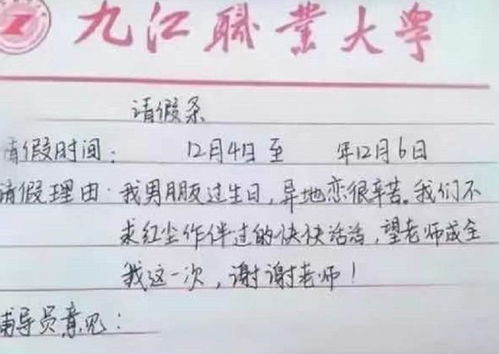 九江職業大学
请假条
请假时间: 12月4日至 年12月6日
请假理由:我男朋友过生日,异地恋很辛苦。我们不
求红尘作伴过的快快活活,望老师成全
我这一次,谢谢老师!
辅导员意见: